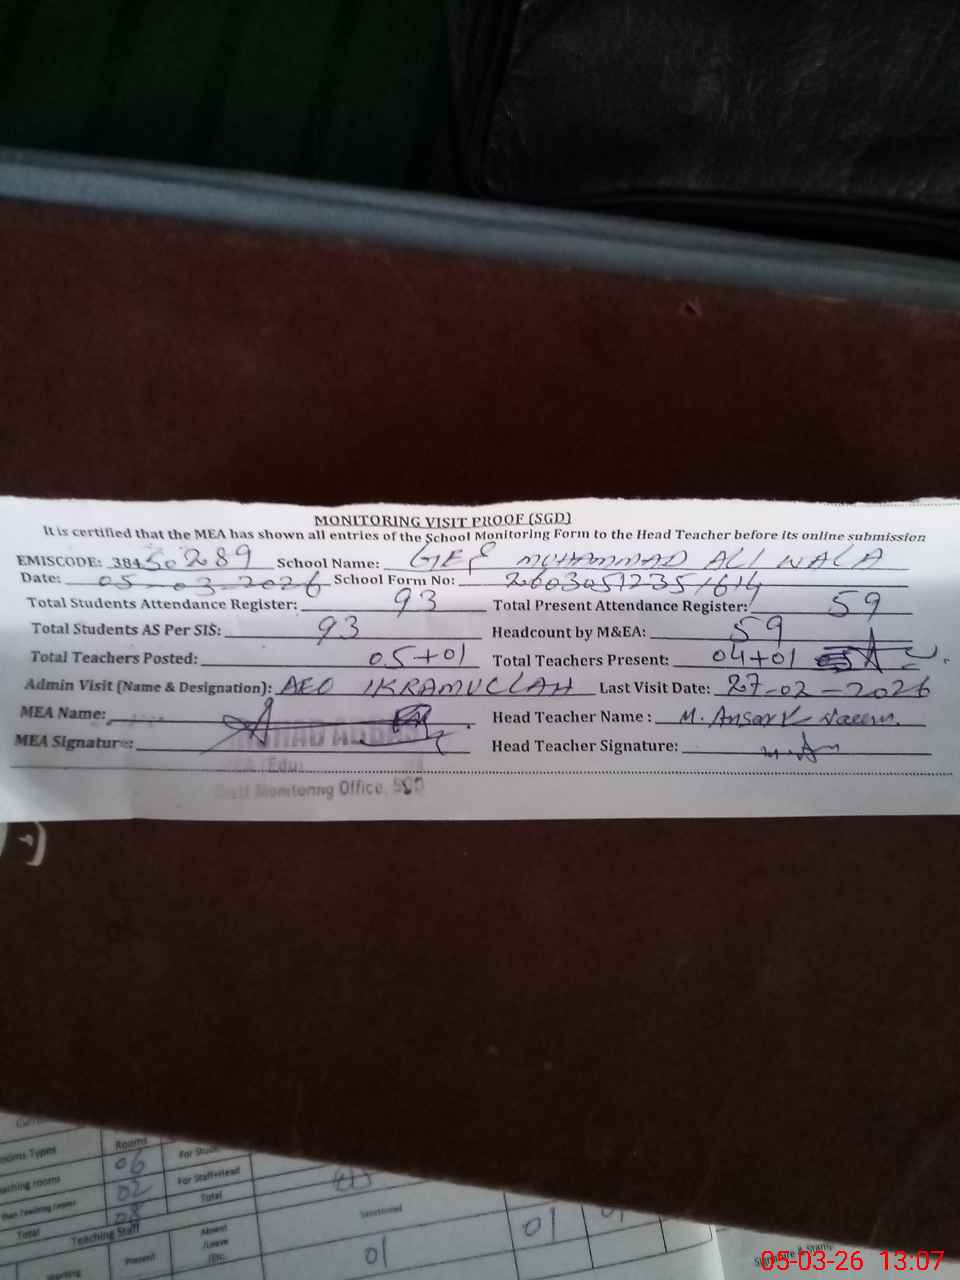 MONITORING VISIT PROOF (SGD)
It is certified that the MEA has shown all entries of the School Monitoring Form to the Head Teacher before its online submission
EMISCODE: 38430289 School Name: GES MUHAMMAD ALI WALA
Date: 05-03-2026 School Form No: 26030512351614
Total Students Attendance Register: 93 Total Present Attendance Register: 59
Total Students AS Per SIS: 93 Headcount by M&EA: 59
Total Teachers Posted: 05+01 Total Teachers Present: 04+01
Admin Visit (Name & Designation): AEO IKRAMULLAH Last Visit Date: 27-02-2026
MEA Name: Head Teacher Name: M. Ansar Naeem.
MEA Signature: Head Teacher Signature:
(Edu)
Monitoring Office, SGD
Rooms Types Rooms For
Teaching rooms 06 For Staff+Head
than Teaching rooms 02 Total
Total 08
Teaching Staff Sanctioned
Working Present Absent /Leave /Etc. 01 01
Signature & Stamp
05-03-26 13:07